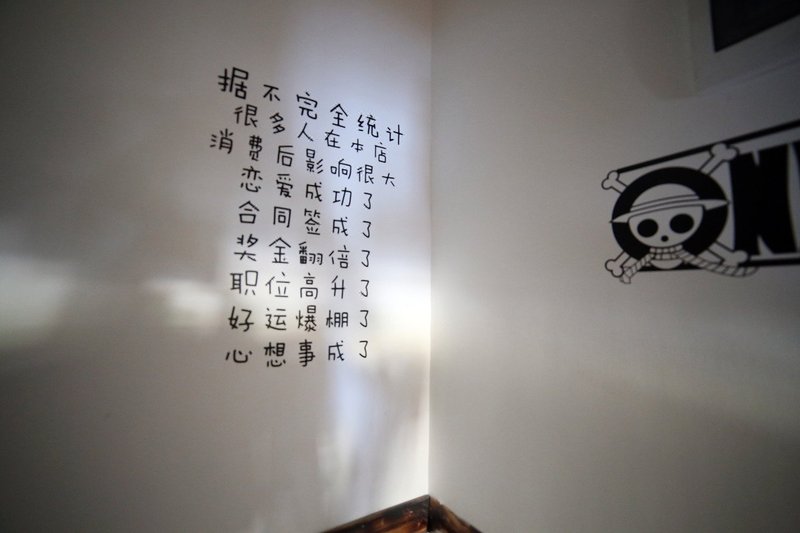 据不完全统计
很多人在本店
消费后影响很大
恋爱成功了
合同签成了
奖金翻倍了
职位高升了
好运爆棚了
心想事成了
ON